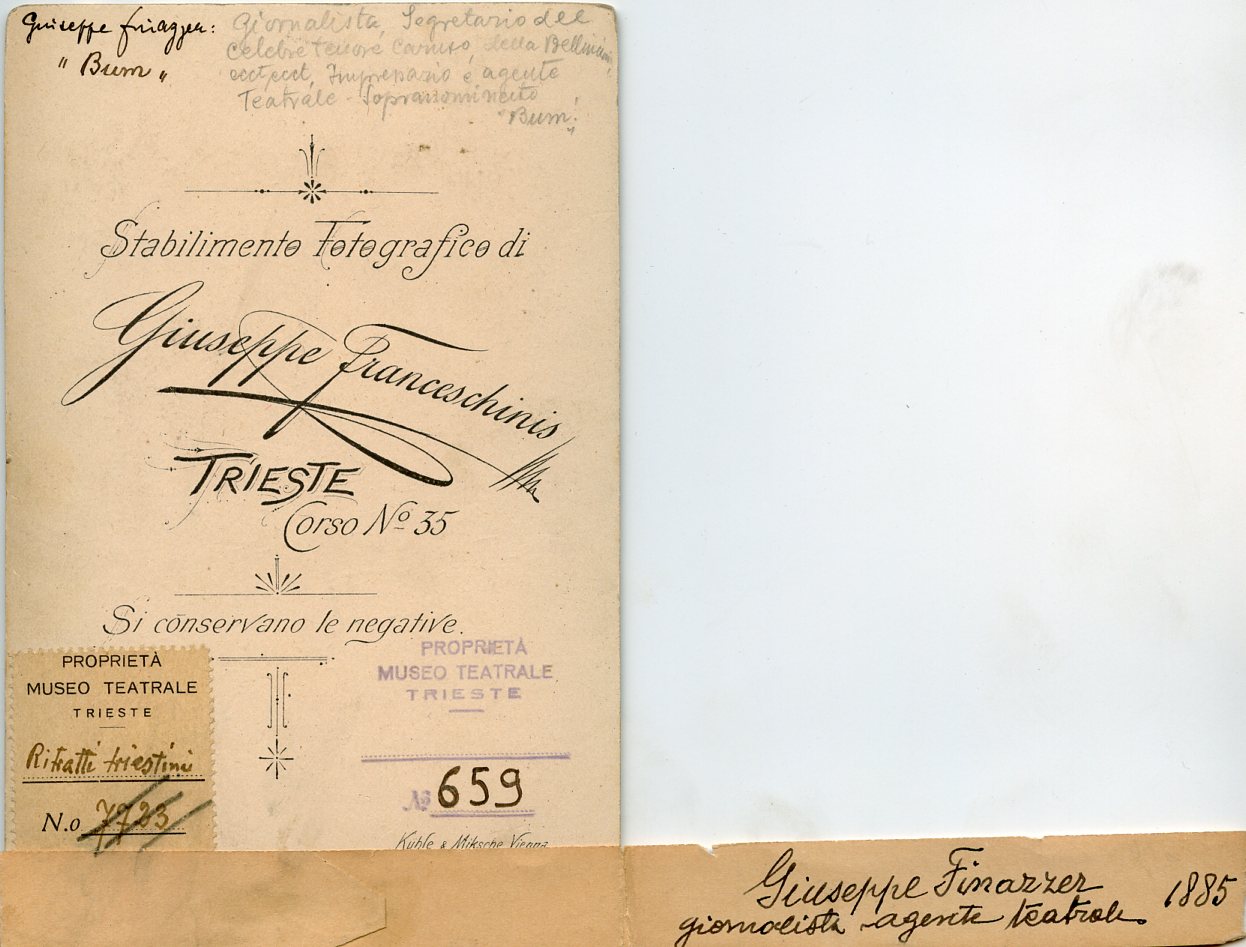 Giuseppe Finazzer:
" Bum "
Giornalista, Segretario del
celebre tenore Caruso, della Bellincioni
ecct, ecct, Impresario e agente
Teatrale - Soprannominato
"Bum"
Stabilimento Fotografico di
Giuseppe Franceschinis
TRIESTE
Corso Nº 35
Si conservano le negative.
PROPRIETÀ
MUSEO TEATRALE
TRIESTE
Ritratti triestini
N.o 7723
PROPRIETÀ
MUSEO TEATRALE
TRIESTE
Nº 659
Kuhle & Miksche Vienna
Giuseppe Finazzer 1885
giornalista agente teatrale